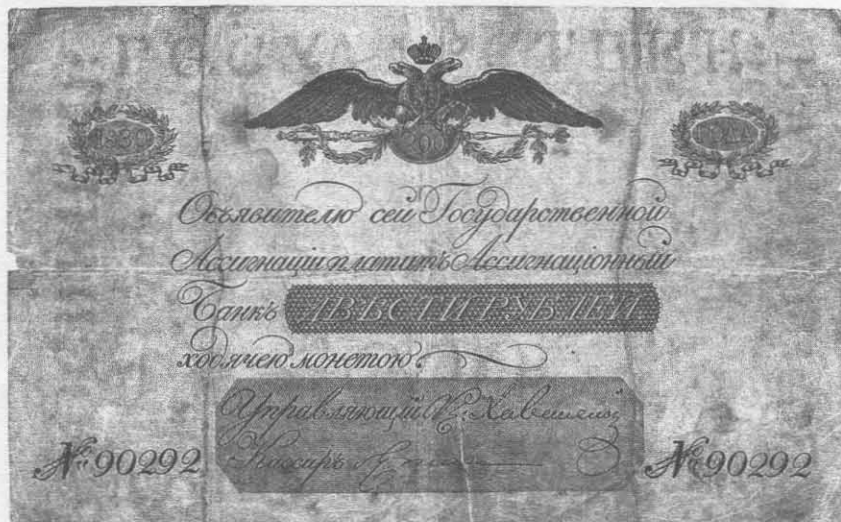 1820
200
Объявителю сей Государственной
Ассигнаціи платитъ Ассигнаціонный
Банкъ ДВѢСТИ РУБЛЕЙ
ходячею монетою.
Управляющій
Кассиръ
№ 90292 № 90292